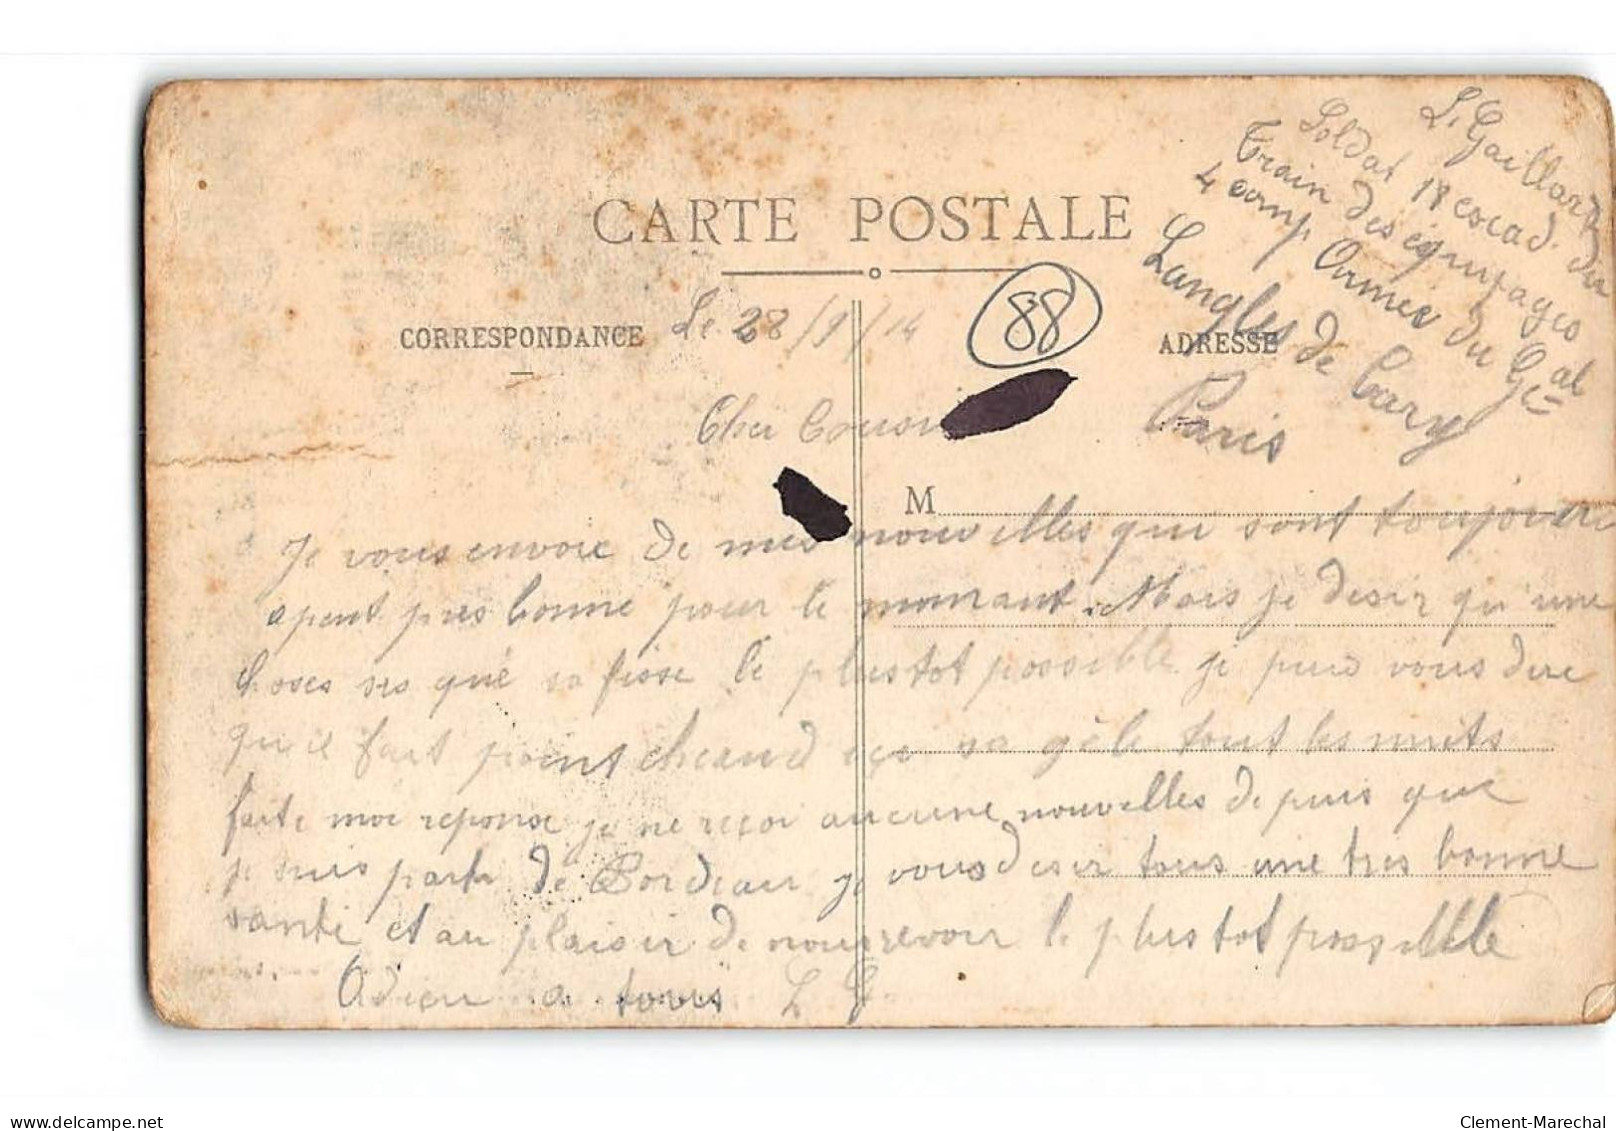 L. Gaillard
Soldat 18 escad. du
Train des equipages
4 comp Armée du Gal
Langles de Cary
Paris
CARTE POSTALE
CORRESPONDANCE
Le 28/9/14
88
ADRESSE
Cher Cousin
M
Je vous envoie de mes nouvelles qui sont toujours
a peut pres bonne pour le momant. Mais je desir qu'une
choses ses que sa fisse le plustot possible je puis vous dire
qu'il fait point cheaud ici sa gèle tout les nuits
faite moi reponse je ne reçoi aucune nouvelles depuis que
je suis partir de Bordeaux je vous desir tous une tres bonne
santé et au plaisir de nous revoir le plustot possible
Adieu a tous L G
delcampe.net
Clement-Marechal